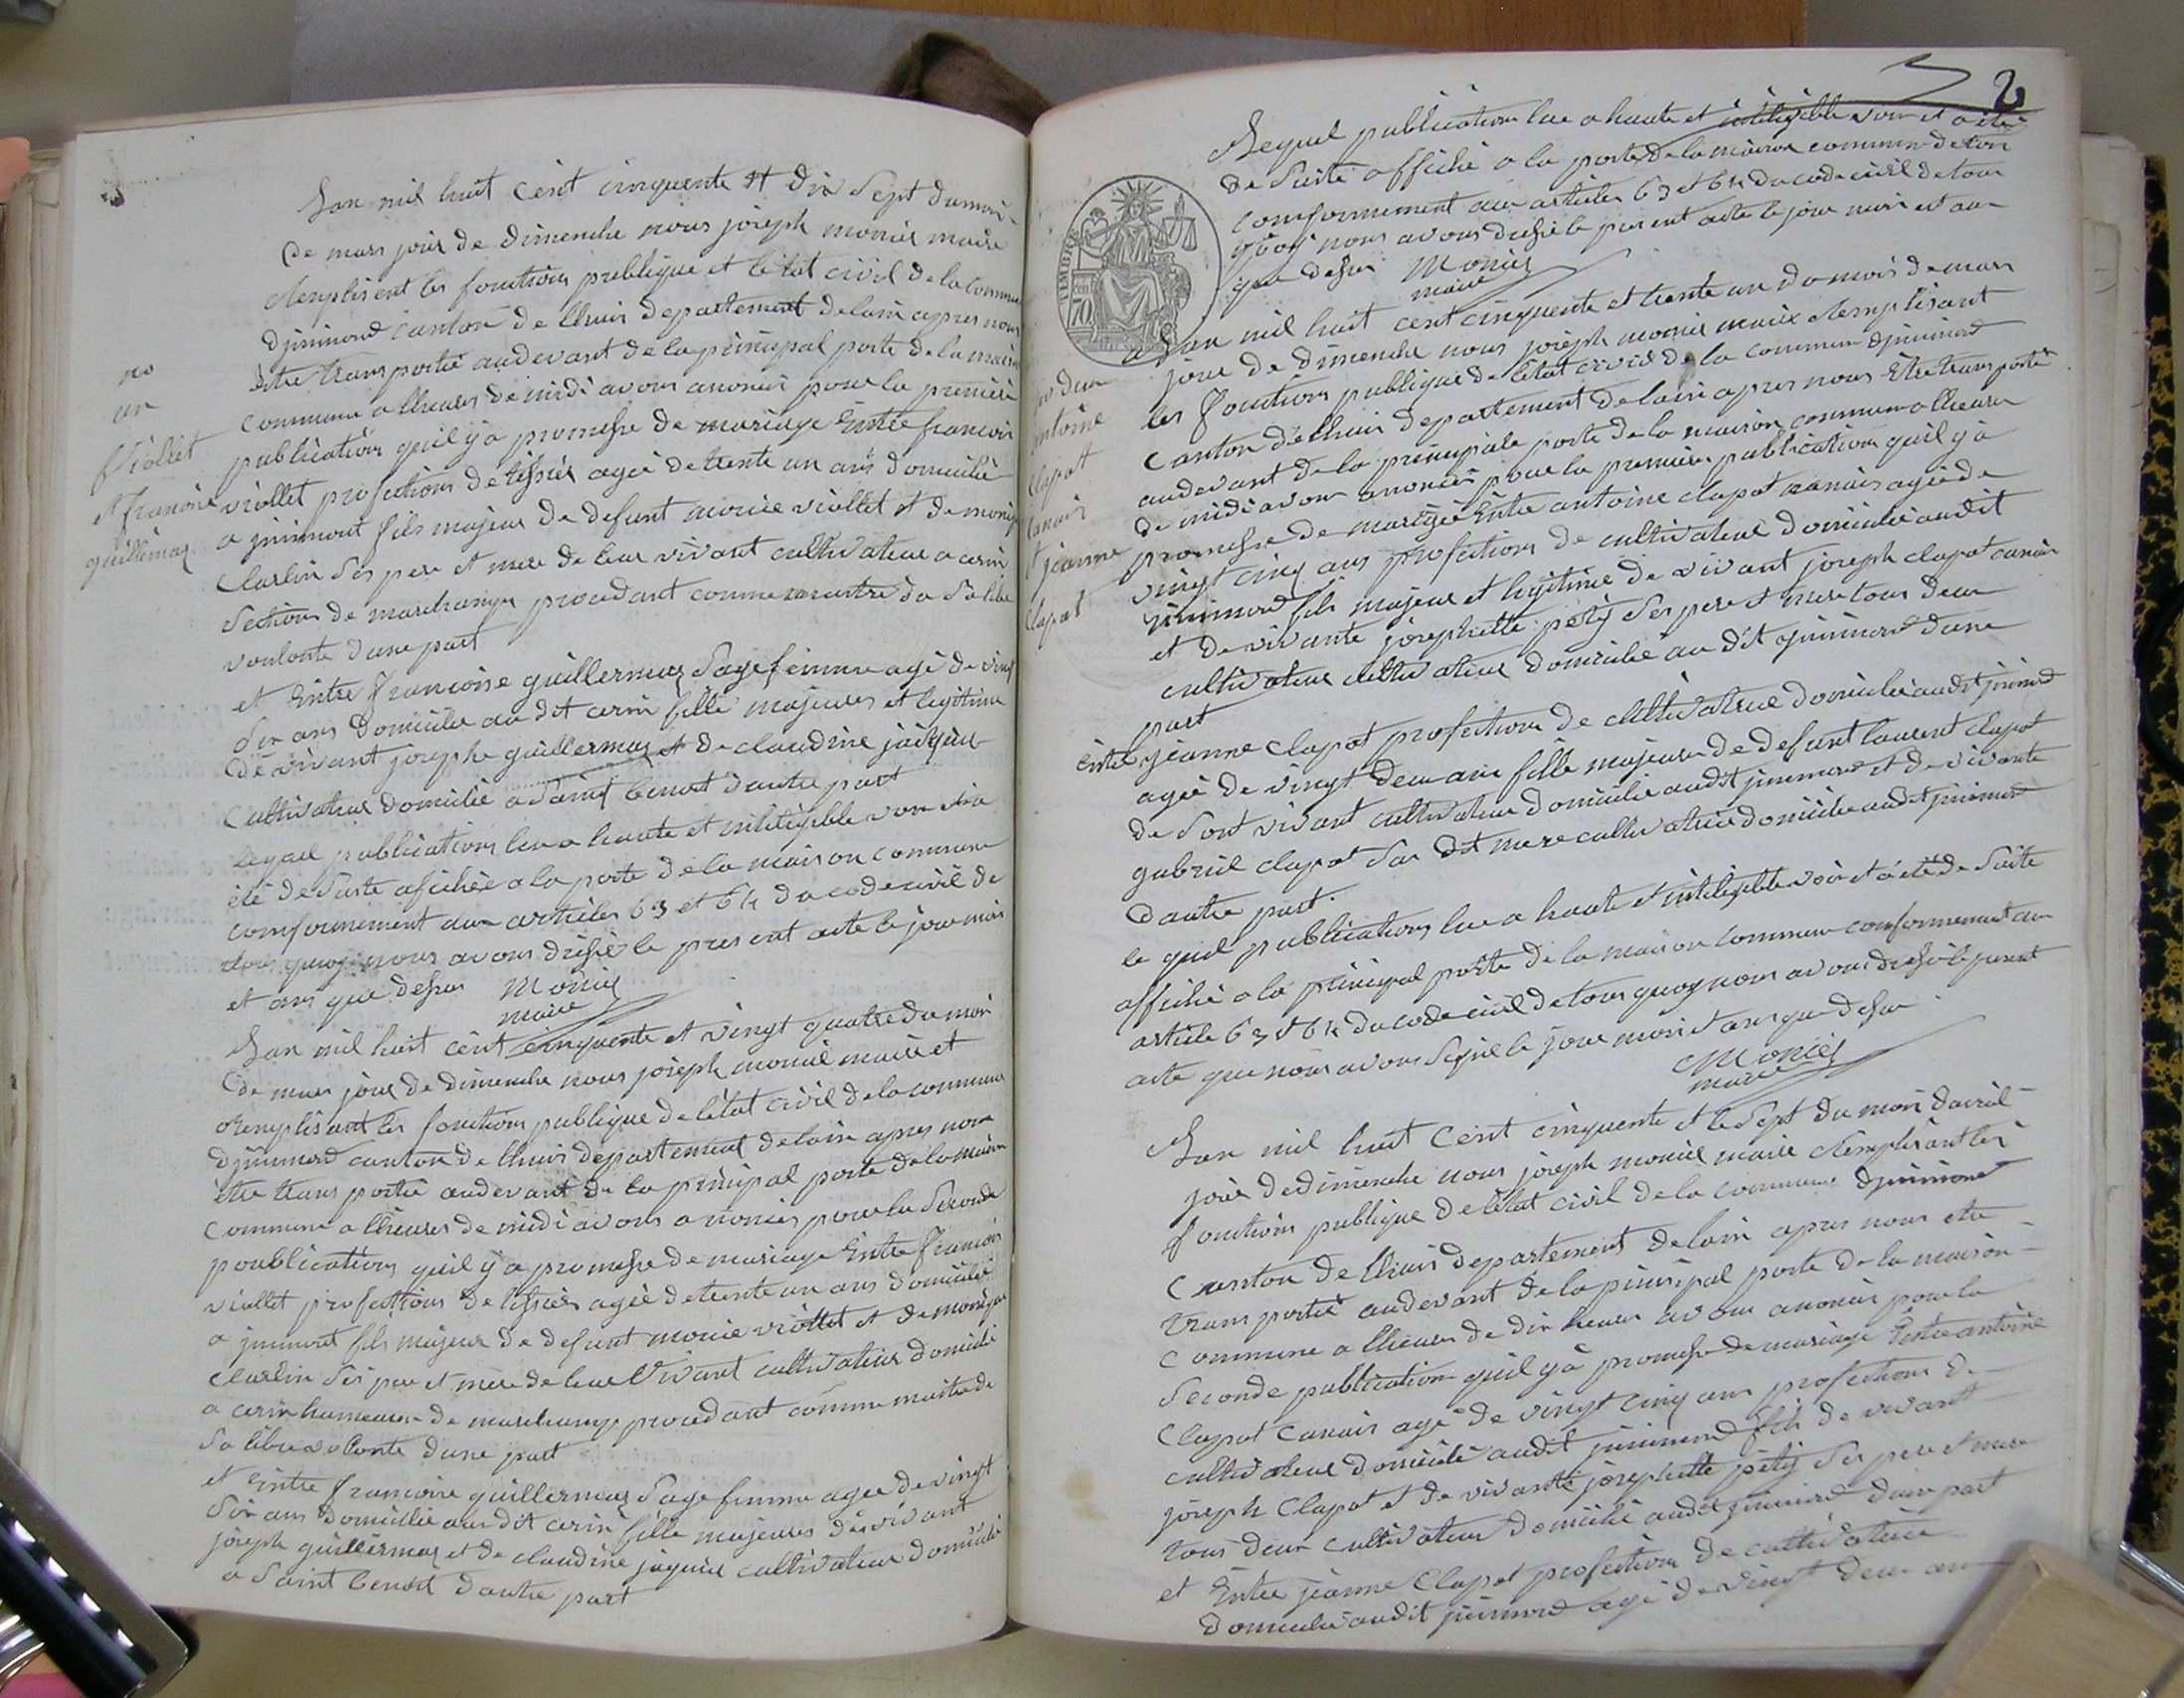 no
un
Viollet
et francoise
guillermoz
Lan mil huit cent cinquente et dix Sept du moi
de mars jour de dimenche nous joseph monier maire
Remplisent les fonctions publique et letat civil de la commune
djnimont canton de lhuis departement de lain apres nous
être transportée audevant de la principal porte de la maison
commune a lheures de midi avons anoncés pour la premiere
publications quil y a promesse de mariage Entre francois
viollet profections de tissier agée de trente un ans domicilié
a jnimont fils majeur de defunt viollet et de
Clarlin Ses pere et mere de leur vivant cultivateur a cerin
Section de marchamps procedant comme maitre de Sa libre
volonte dune part
et Entre francoise guillermoz Sage femme agé de vingt
Six ans domiciliée au dit cerin fille majeures et legitime
de vivant joseph guillermoz et de claudine
Cultivateur domicilié a Saint benoit dautre part
lequel publications lue a haute et intiligible voix et a
été de Suite afichée a la porte de la maison commune
conformement aux articles 63 et 64 du code civil de
tous quoy nous avons dréssé le present acte le jour mois
et ans que dessus Monier
maire
Lan mil huit cent cinquente et vingt quatre du moi
de mars jour de dimenche nous joseph monier maire et
Remplisant les fonctions publique de létat civil de la commune
djnimont canton de lhuis departement de lain apres nous
être transportée audevant de la principal porte de la maison
commune a lheures de midi avons anoncés pour la Seconde
publications quil y a promesse de mariage Entre francois
viollet profections de tissier agée de trente un ans domicilié
a jnimont fils majeur de defunt viollet et de
Clarlin Ses pere et mere de leur Vivant cultivateur domicilié
a cerin hameaux de marchamp procedant comme maitre de
Sa libre volonte dune part
et Entre francoise guillermoz Sage femme agee de vingt
Six ans domicilliée au dit cerin fille majeures de vivant
joseph guillermoz et de claudine cultivateur domicilié
a Saint benoit dautre part
2
Lequel publications lue a haute et intiligible voix et a été
de Suite affiché a la porte de la maison commune de ton
conformement aux articles 63 et 64 du code civil de tous
quoy nous avons dréssé le present acte le jour mois et an
que dessus Monier
maire
TIMBRE
70
no deux
antoine
clapot
canair
et jeanne
Clapot
Lan mil huit cent cinquente et trente un du mois de mars
jour de dimenche nous joseph monier maire Remplisant
les fonctions publique de létat civil de la commune djnimont
canton de lhuis departement de lain apres nous être transporté
audevant de la principale porte de la maison commune a lheures
de midi avons anoncés pour la premiere publications quil y a
promesse de mariage Entre antoine clapot canais agée de
vingt cinq ans profections de cultivateur domicilié audit
jnimond fils majeur et legitime de vivant joseph clapot canair
et de vivante josephette petiy Ses pere et mere tous deux
cultivateur cultivateur domicilié au dit jnimond dune
part
Entre jeanne clapot profections de cultivatrice domiciliée audit jnimond
agée de vingt deux ans fille majeure de defunt laurent clapot
de Sont vivant cultivateur domicilié audit jnimond et de vivante
gabriel clapot Sa dit mere cultivatrice domiciliée audit jnimond
dautre part.
le quel publications lue a haute et intiligible voix et a été de Suite
affiché a la principal porte de la maison commune conformement aux
article 63 et 64 du code civil de tous quoy nous avons dressé le present
acte que nous avons Signé le jour mois et ans que dessus
Monier
maire
Lan mil huit cent cinquente et le Sept du mois davril
jour de dimenche nous joseph monier maire Remplisant les
fonctions publique de létat civil de la commune djnimond
canton de lhuis departement de lain apres nous etre
transportée audevant de la principal porte de la maison
commune a lheures de dix heures avons anoncés pour la
Seconde publication quil y a promesse de mariage Entre antoine
Clapot canais agé de vingt cinq ans profections de
cultivateur domicilié audit jnimond fils de vivant
joseph Clapot et de vivante josephette petiy Ses pere et mere
tous deux cultivateur domicilié audit jnimond dune part
et Entre jeanne Clapot profections de cultivatrice
domiciliée audit jnimond agé de vingt deux an